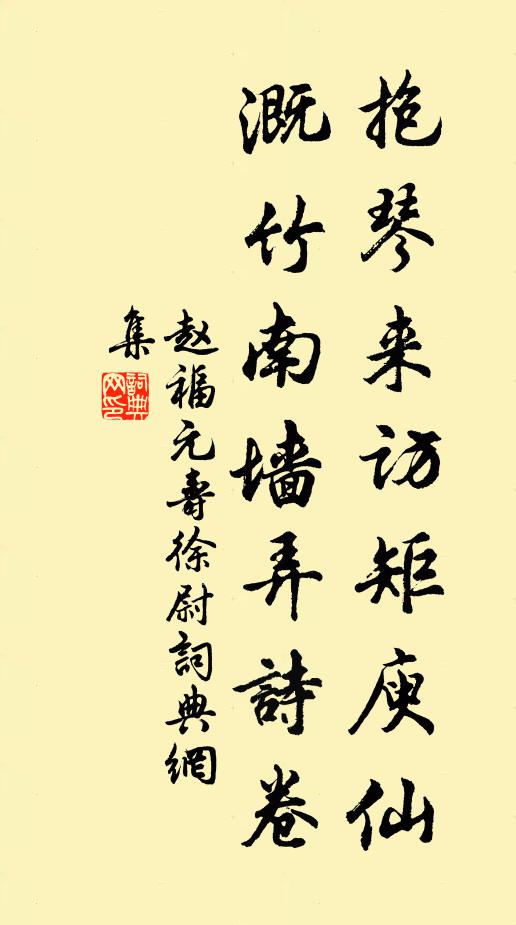 抱琴来访矩庾仙
溉竹南墙弄詩卷
赵福元壽徐尉詞典網
集
詞典网印